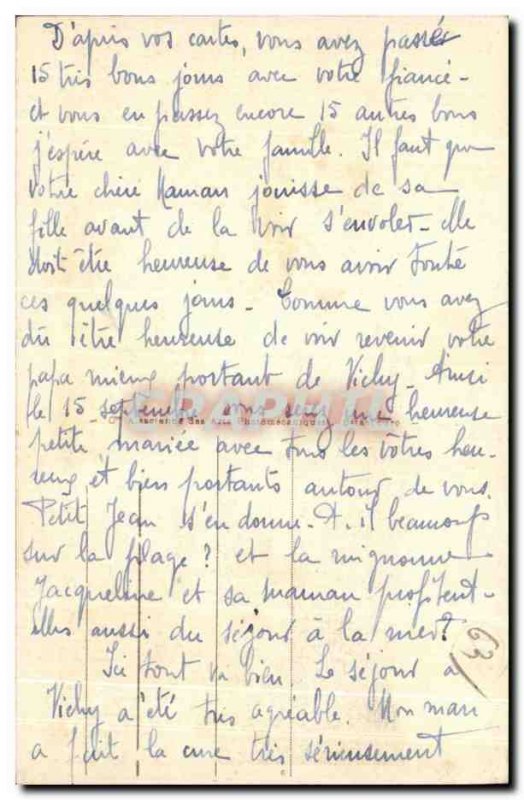 D'après vos cartes, vous avez passé
15 très bons jours avec votre fiancé -
et vous en passez encore 15 autres bons
j'espère avec votre famille. Il faut que
votre chère Maman jouisse de sa
fille avant de la voir s'envoler - elle
doit être heureuse de vous avoir toute
ces quelques jours - Comme vous avez
du être heureuse de voir revenir votre
papa mieux portant de Vichy - Ainsi
le 15 septembre vous serez une heureuse
petite mariée avec tous les vôtres heu-
reux et bien portants autour de vous.
Petit Jean s'en donne-t-il beaucoup
sur la plage ? et la mignonne
Jacqueline et sa maman profitent-
elles aussi du séjour à la mer ?
63
Ici tout va bien. Le séjour à
Vichy a été très agréable. Mon mari
a fait la cure très sérieusement